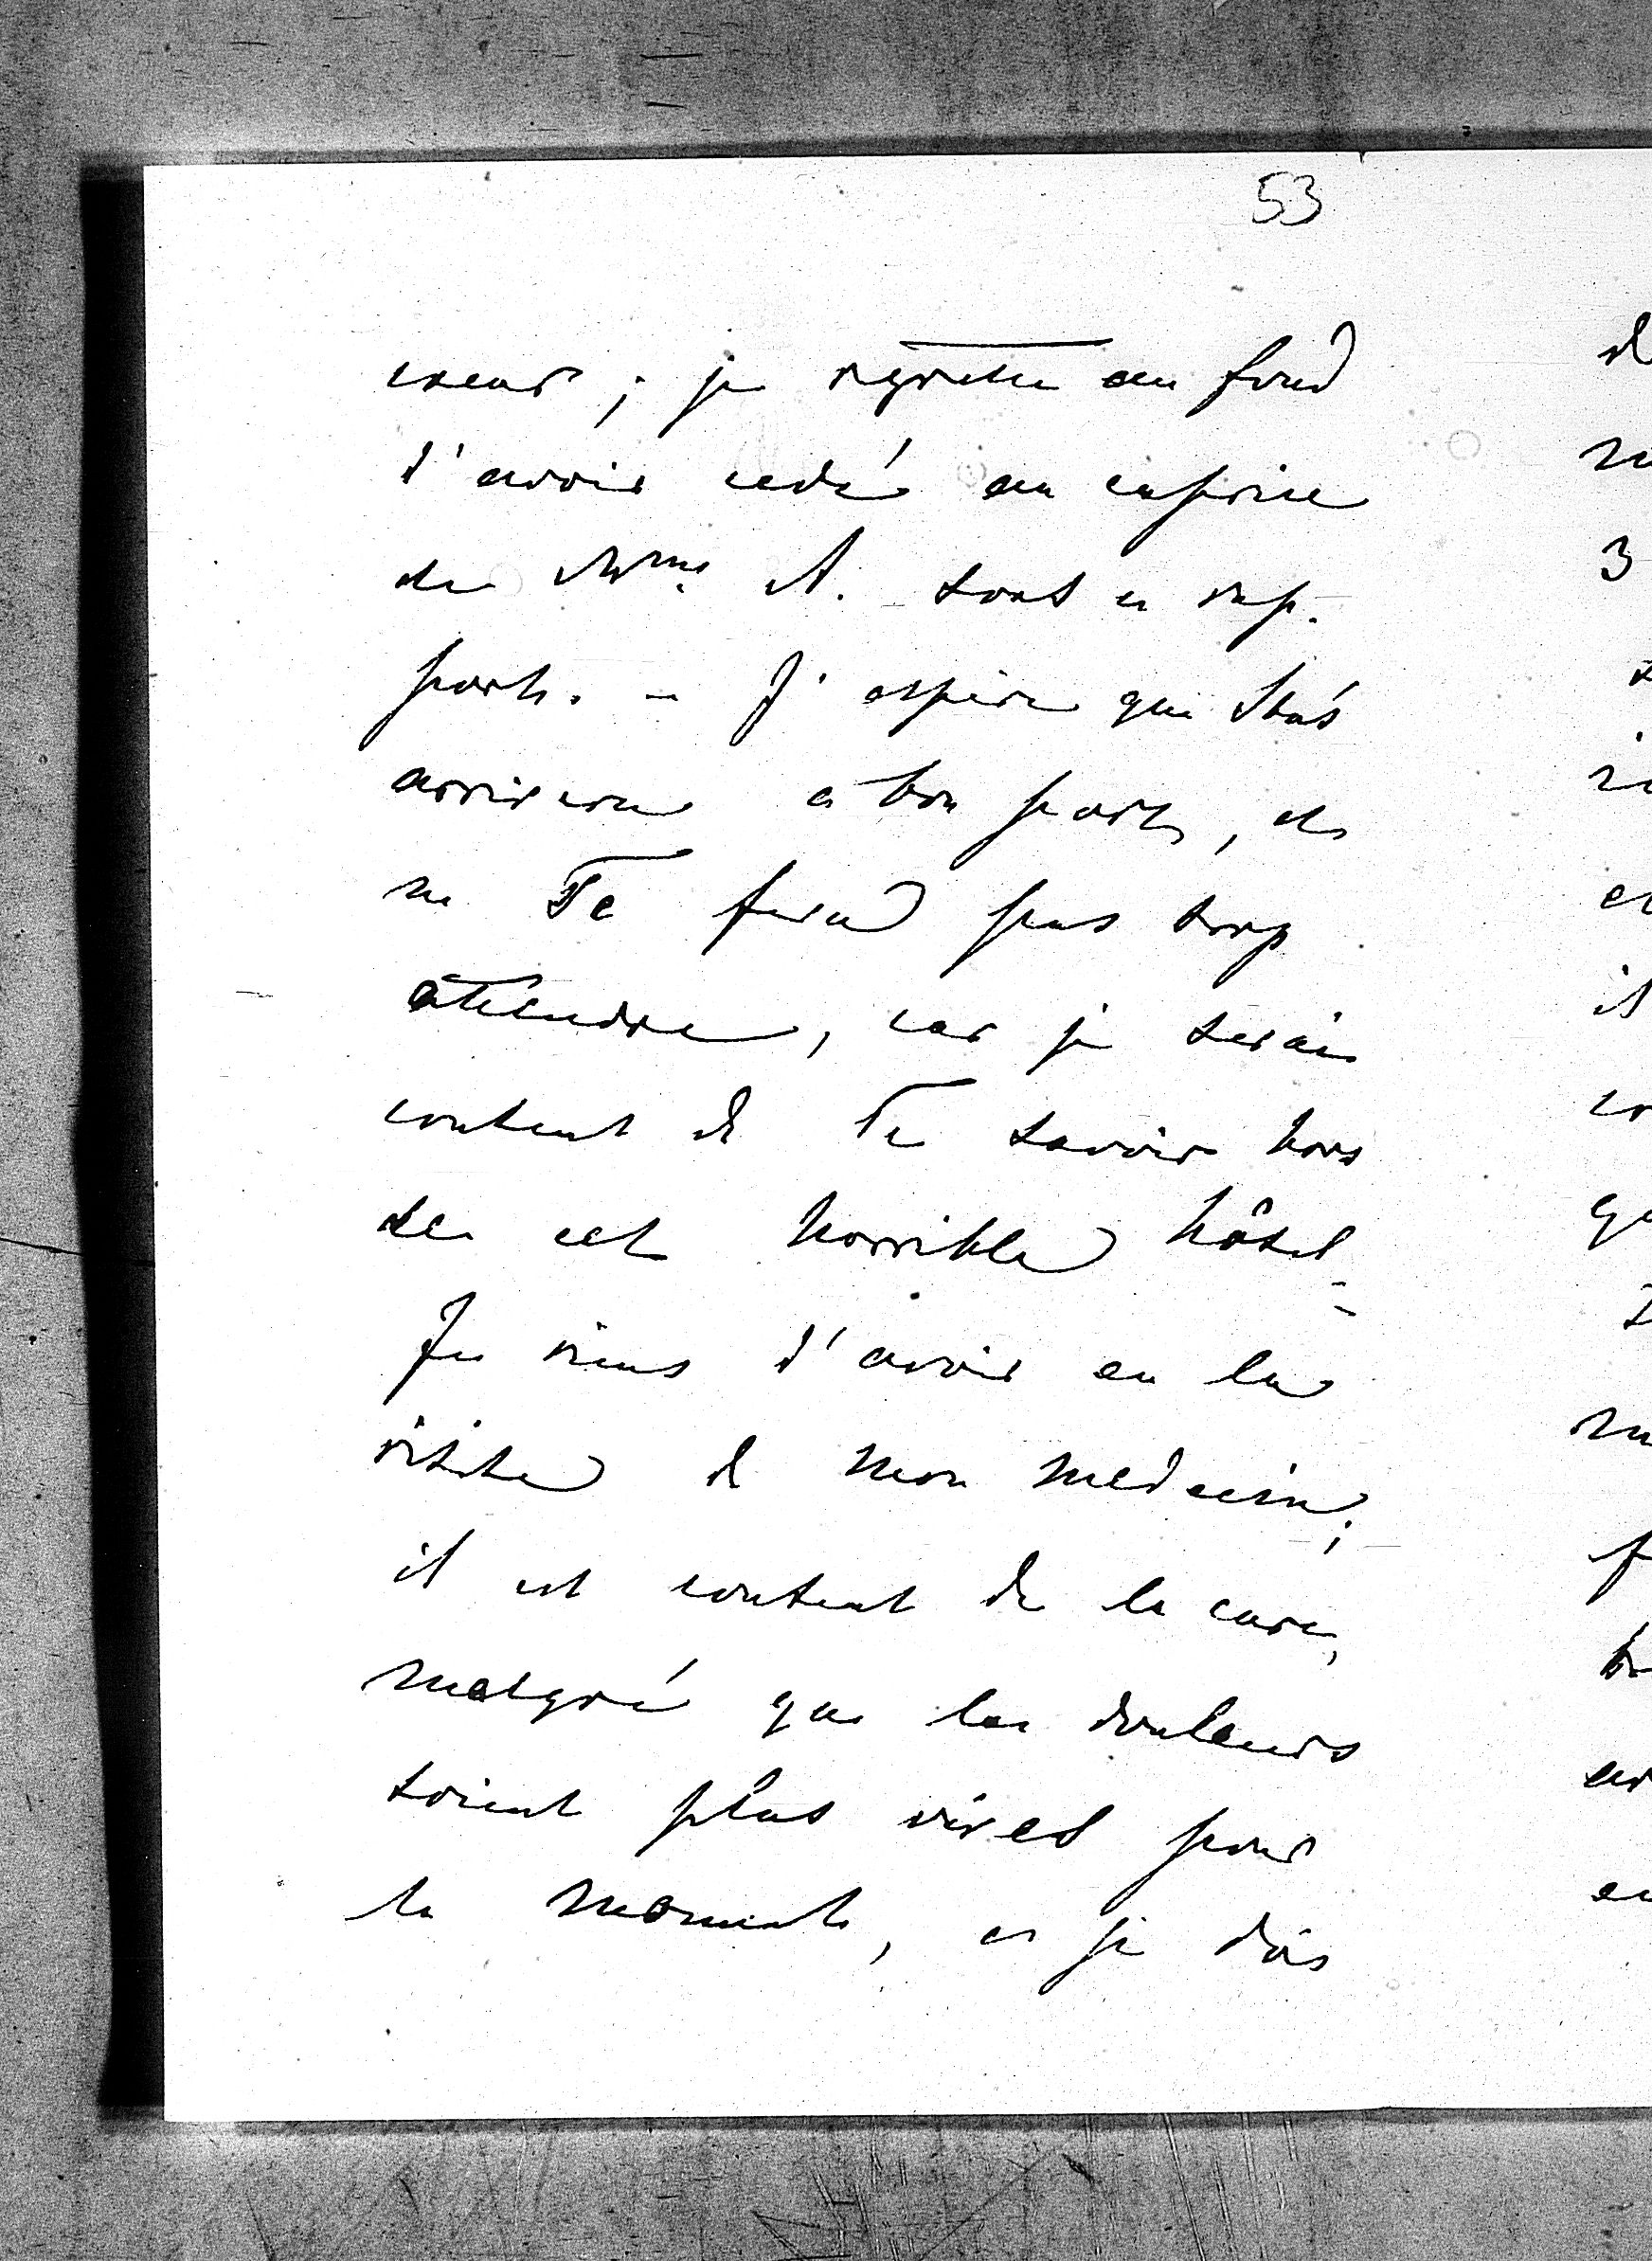 53
coeur ; je regrette au fond
d'avoir cédé au caprice
de Mme A. sous ce rap-
port. – J'espère que
arrivera à bon port, et
ne Te fera pas trop
attendre, car je serais
content de Te savoir hors
de cet horrible hôtel –
Je viens d'avoir eu la
visite de mon médecin;
il est content de la cure,
malgré que les douleurs
soient plus vives pour
le moment, et je dois